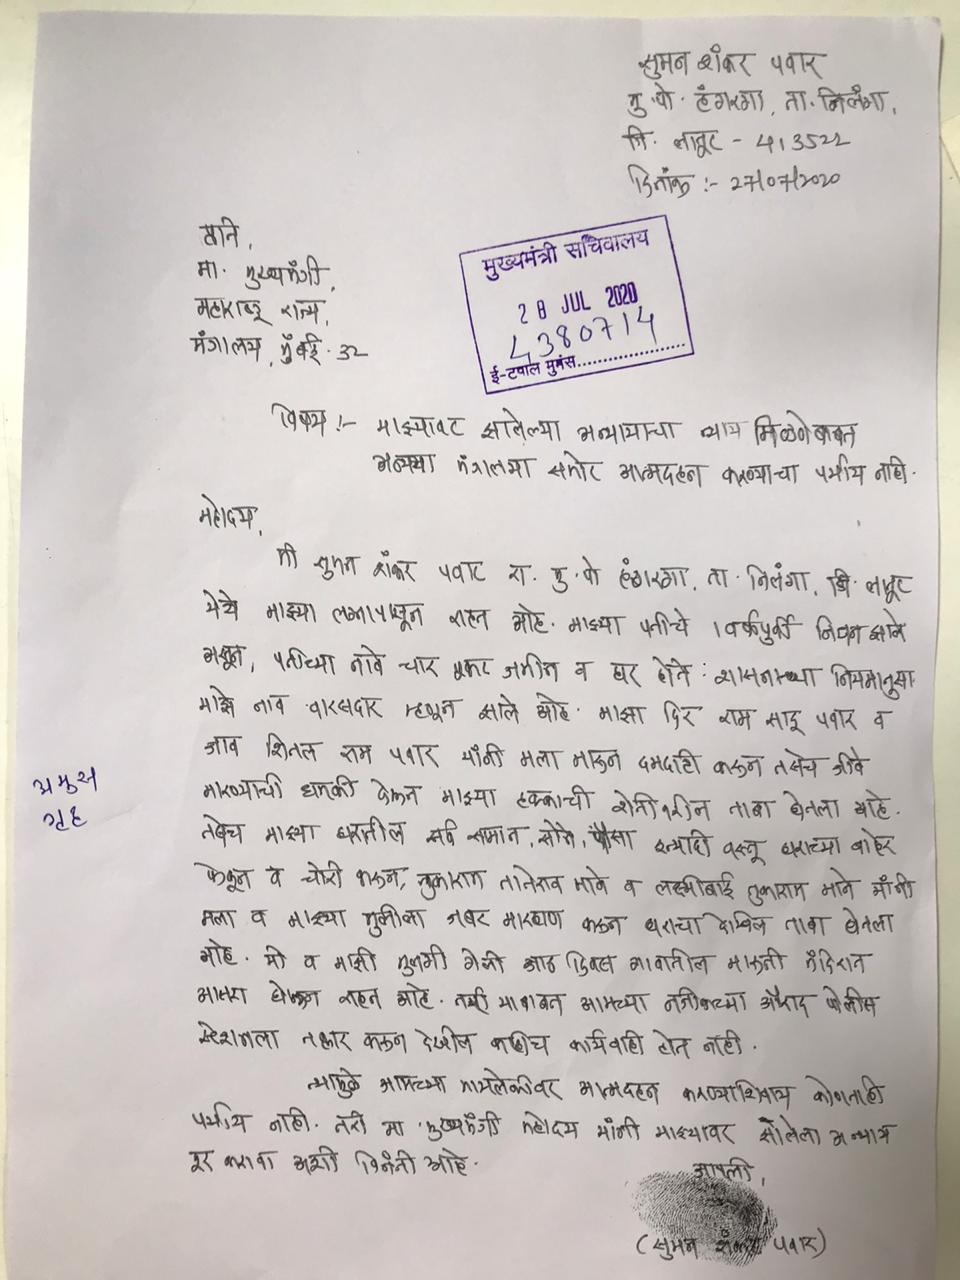 सुमन शंकर पवार
मु.पो. हंगरगा, ता. निलंगा,
जि. लातूर - 413522
दिनांक :- 27/07/2020
प्रति,
मा. मुख्यमंत्री,
महाराष्ट्र राज्य,
मंत्रालय, मुंबई. 32
मुख्यमंत्री सचिवालय
28 JUL 2020
4380714
ई-टपाल मुमंस..................
विषय :- माझ्यावर झालेल्या अन्यायाचा न्याय मिळणेबाबत
अन्यथा मंत्रालया समोर आत्मदहन करण्याचा पर्याय नाही.
महोदय,
मी सुमन शंकर पवार रा. मु. पो हंगरगा, ता. निलंगा, जि. लातूर
येथे माझ्या लग्नापासून राहत आहे. माझ्या पतीचे 1 वर्षापुर्वी निधन झाले
असून, पतीच्या नावे चार एकर जमीन व घर होते. शासनाच्या नियमानुसा
माझे नाव वारसदार म्हणून झाले आहे. माझा दिर राम साधू पवार व
जाव शितल राम पवार यांनी मला मारून दमदाटी करून तसेच जीवे
मारण्याची धमकी देऊन माझ्या हक्काची शेतीजमीन ताबा घेतला आहे.
तसेच माझ्या घरातील सर्व समान, सोने, पैसा इत्यादी वस्तू घराच्या बाहेर
फेकून व चोरी करून, तुकाराम तानेराव माने व लक्ष्मीबाई तुकाराम माने यांनी
मला व माझ्या मुलीला जबर मारहाण करून घराचा देखिल ताबा घेतला
आहे. मी व माझी मुलगी गेली आठ दिवस गावातील मारुती मंदिरात
आसरा घेऊन राहत आहे. तरी याबाबत आमच्या नजीकच्या औराद पोलीस
स्टेशनला तक्रार करून देखील काहीच कार्यवाही होत नाही.
त्यामुळे आमच्या मायलेकीवर आत्मदहन करण्याशिवाय कोणताही
पर्याय नाही. तरी मा. मुख्यमंत्री महोदय यांनी माझ्यावर झालेला अन्याय
दूर करावा अशी विनंती आहे.
आपली,
(सुमन शंकर पवार)
गृह